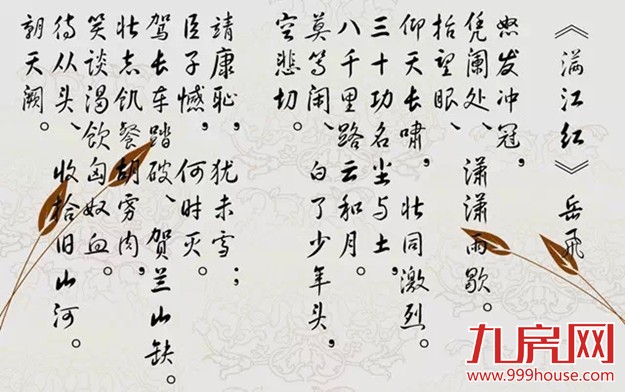 《满江红》岳飞
怒发冲冠,
凭阑处、潇潇雨歇。
抬望眼、
仰天长啸,壮同激烈。
三十功名尘与土,
八千里路云和月。
莫等闲、白了少年头,
空悲切。
靖康耻,犹未雪;
臣子憾,何时灭。
驾长车踏破、贺兰山缺。
壮志饥餐胡虏肉,
笑谈渴饮匈奴血。
待从头、收拾旧山河。
朝天阙。
九房网
www.999house.com